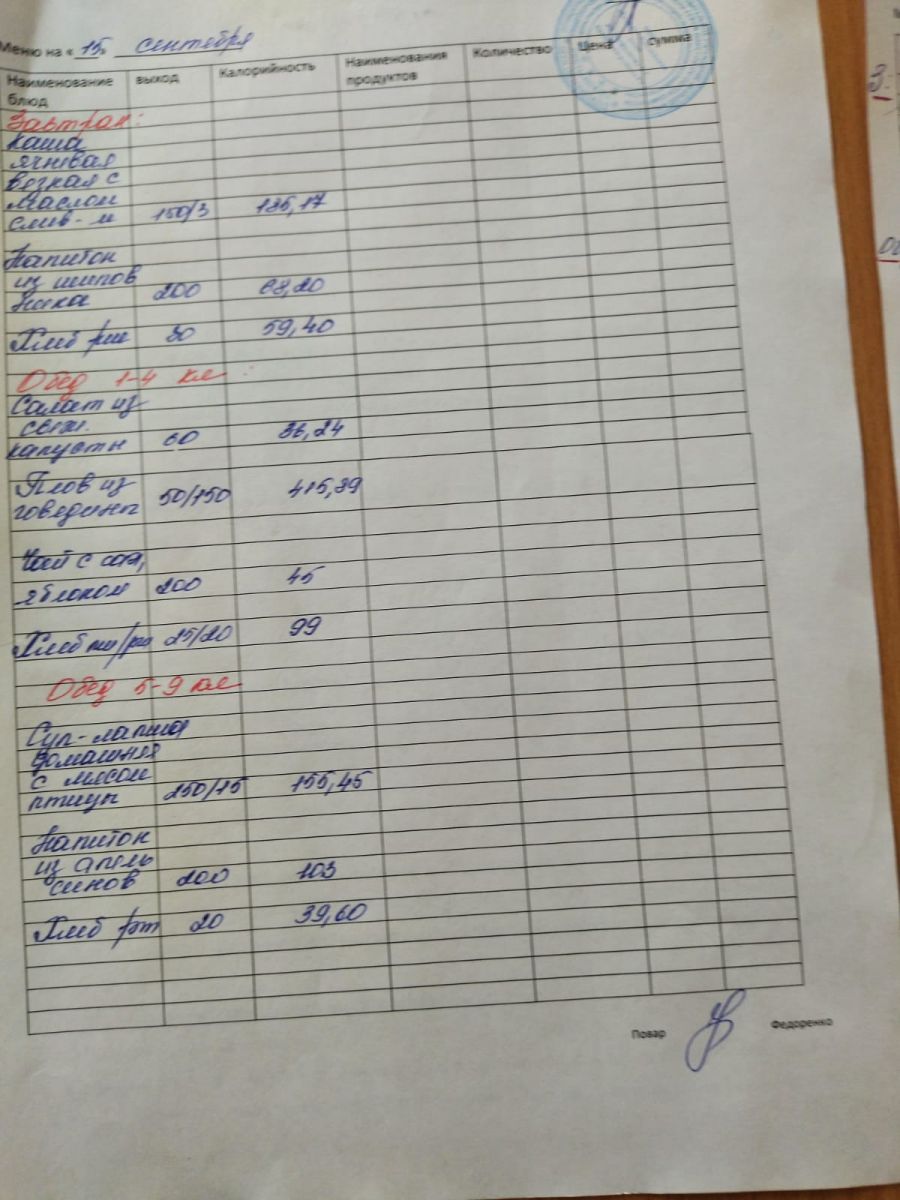 Меню на « 15» сентября
Наименование блюд выход Калорийность Наименования продуктов Количество Цена сумма
Завтрак:
каша
ячневая
вязкая с
маслом
слив-м 150/3 185,17
Напиток
из шипов
ника 200 68,20
Хлеб рж 30 59,40
Обед 1-4 кл :
Салат из
свеж.
капусты 60 36,24
Плов из
говядины 50/150 415,39
Чай с
яблоком 200 45
Хлеб пш/рж 25/20 99
Обед 5-9 кл
Суп-лапша
домашняя
с мясом
птицы 250/15 155,45
Напиток
из апель
синов 200 103
Хлеб 20 39,60
Повар Федоренко
3.